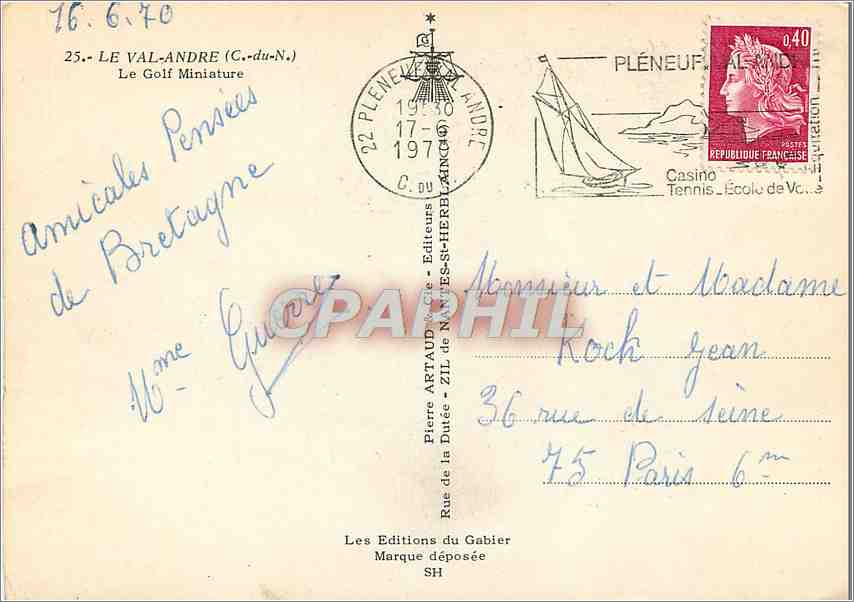 16.6.70
25.- LE VAL-ANDRE (C.-du-N.)
Le Golf Miniature
Amicales Pensées
de Bretagne
Mme
22 PLENEUF VAL ANDRE
17-6
1970
C. DU N.
PLÉNEUF VAL-ANDRÉ
Casino
Tennis_École de Voile
Équitation
0,40
POSTES
REPUBLIQUE FRANÇAISE
CPARPHIL
Pierre ARTAUD & Cie - Editeurs
Rue de la Dutée - ZIL de NANTES-St-HERBLAIN
Monsieur et Madame
Kock Jean
36 rue de seine
75 Paris 6m
Les Editions du Gabier
Marque déposée
SH